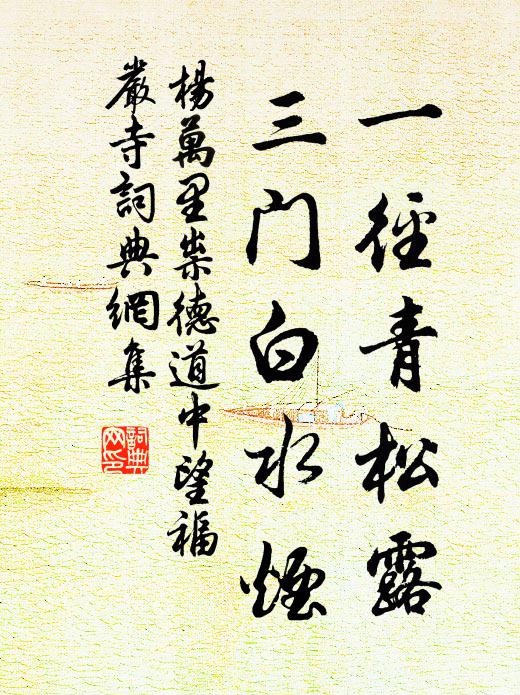 一徑青松露
三門白水煙
楊萬里崇德道中望福
嚴寺詞典網集
詞典
网印